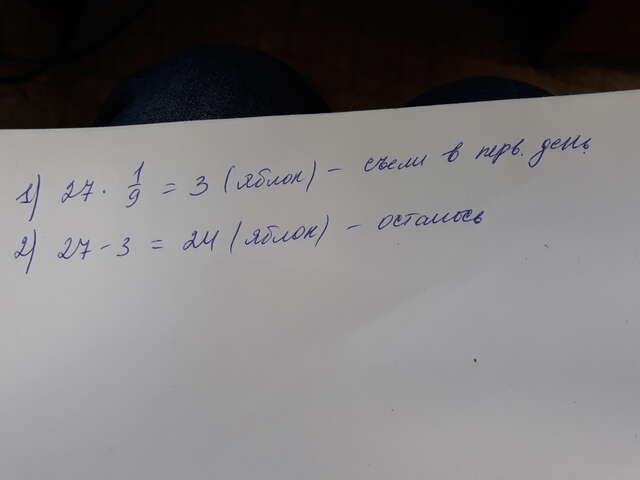 1) 27 · 1/9 = 3 (яблок) – съели в перв. день.
2) 27 – 3 = 24 (яблок) – осталось